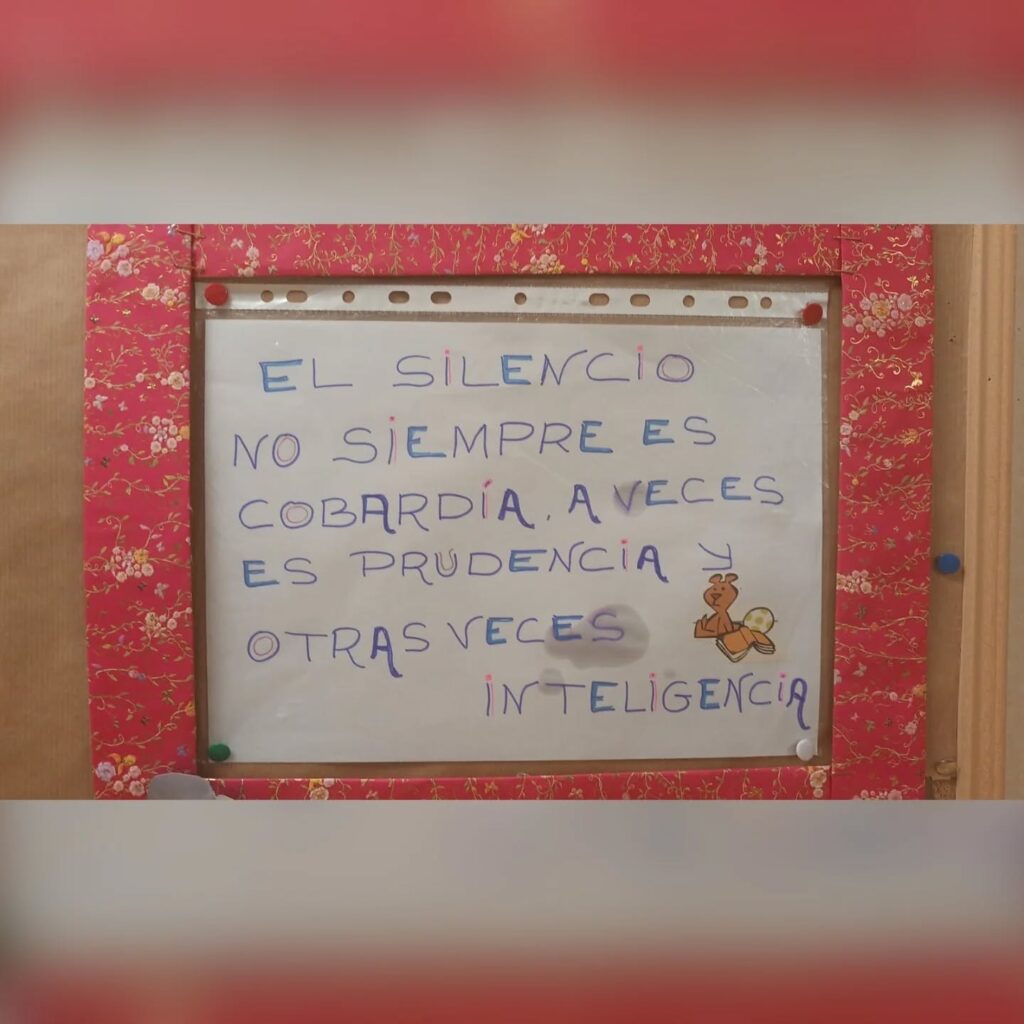 EL SILENCIO
NO SIEMPRE ES
COBARDÍA. A VECES
ES PRUDENCIA Y
OTRAS VECES
INTELIGENCIA